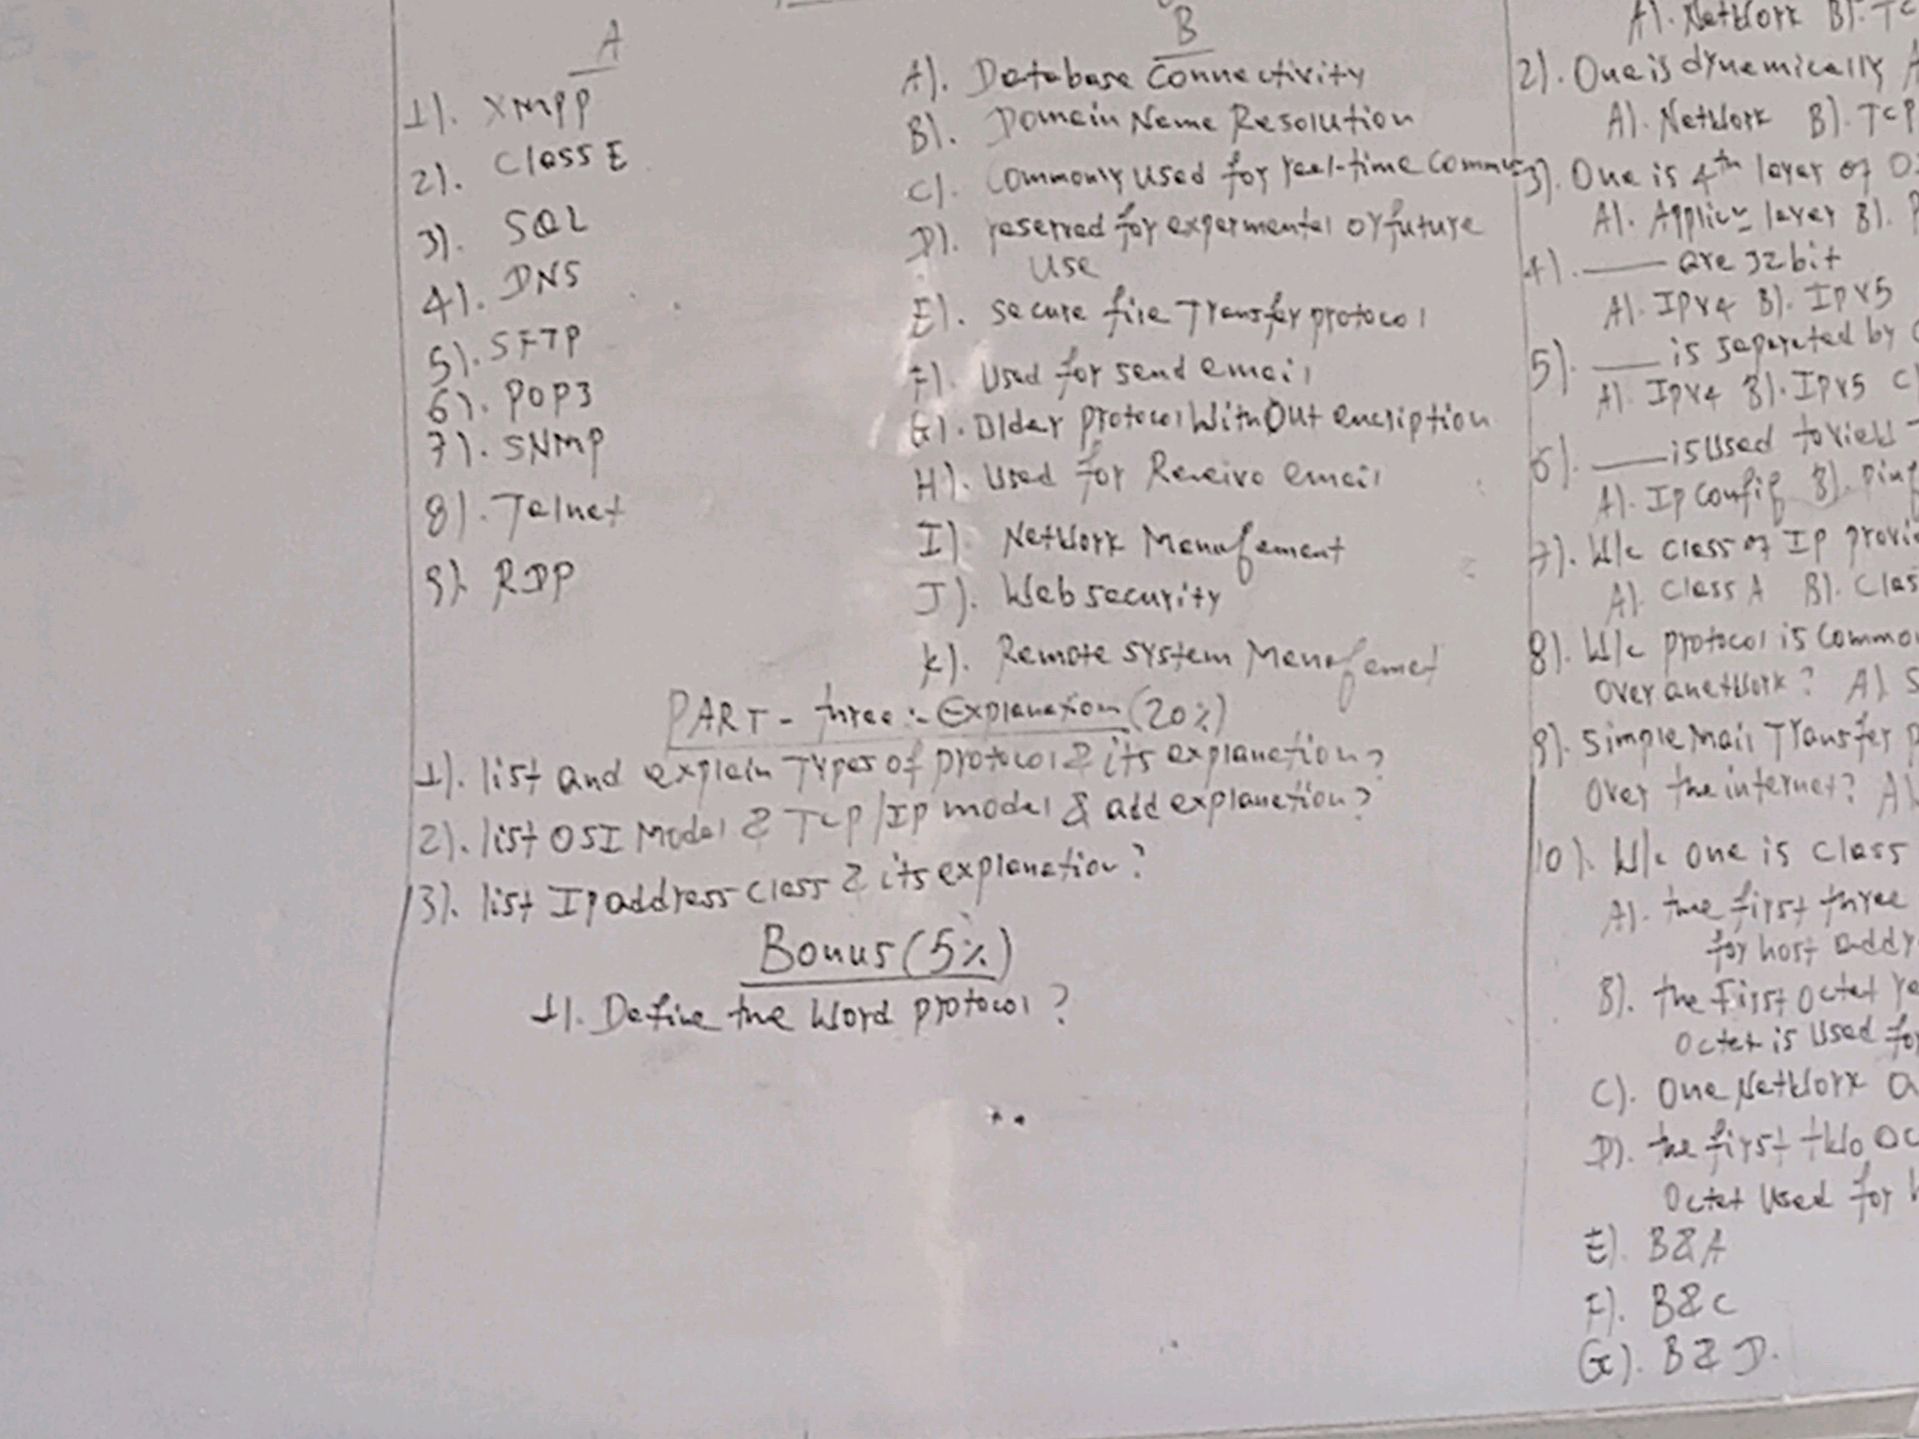 A
1). XMPP
2). Class E
3). SQL
4). DNS
5). SFTP
6). POP3
7). SNMP
8). Telnet
9). RDP
B
A). Database Connectivity
B). Domain Name Resolution
C). Commonly Used for real-time Commu
D). reserved for expermental or future
Use
E). Secure file Transfer protocol
F). Used for send email
G). Older protocol WithOut encription
H). Used for Receive email
I). Network Management
J). Web security
K). Remote system Managemet
PART - three :- Explanation (20%)
1). list and explain Types of protocol & its explanation?
2). list OSI Model & TCP/Ip model & add explanation?
3). list Ip address class & its explanation?
Bonus (5%)
1). Define the Word protocol?
A). Network B). TC
2). One is dynemically A
A). Network B). TCP
3). One is 4th layer of O
A). Applic layer B). P
4). ___ are 32bit
A). IPV4 B). IPV5
5). ___ is seperated by
A). IPV4 B). IPV5 C
6). ___ is Used to view
A). Ip Config B). Ping
7). W/c class of IP provi
A). Class A B). Clas
8). W/c protocol is Commo
Over anetwork? A). S
9). Simple Mail Transfer p
Over the internet? A).
10). W/c one is class
A). the first three
for host addr
B). the First Octet re
Octet is Used for
C). One Network a
D). the first two Oc
Octet Used for h
E). B&A
F). B&C
G). B&D.